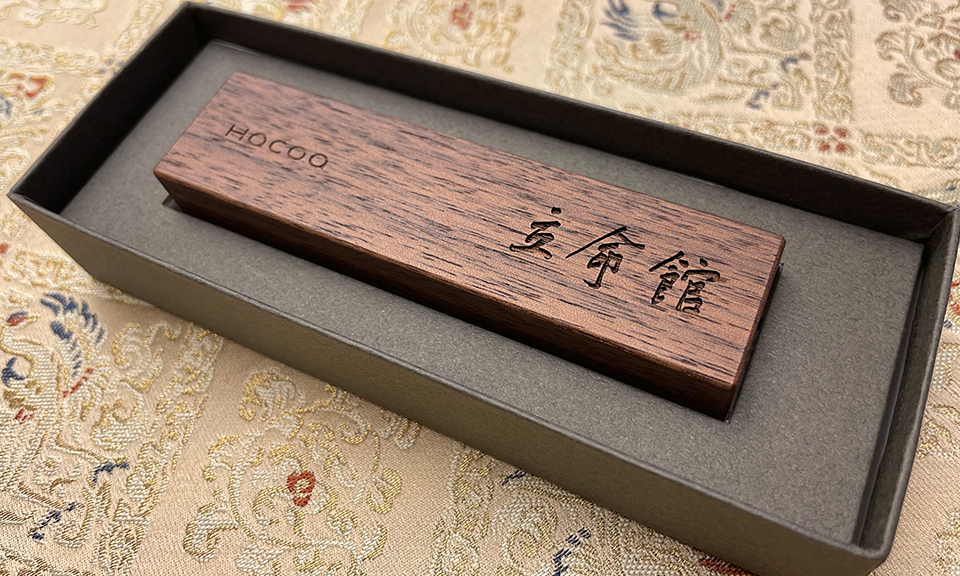 HOCOO
立命館